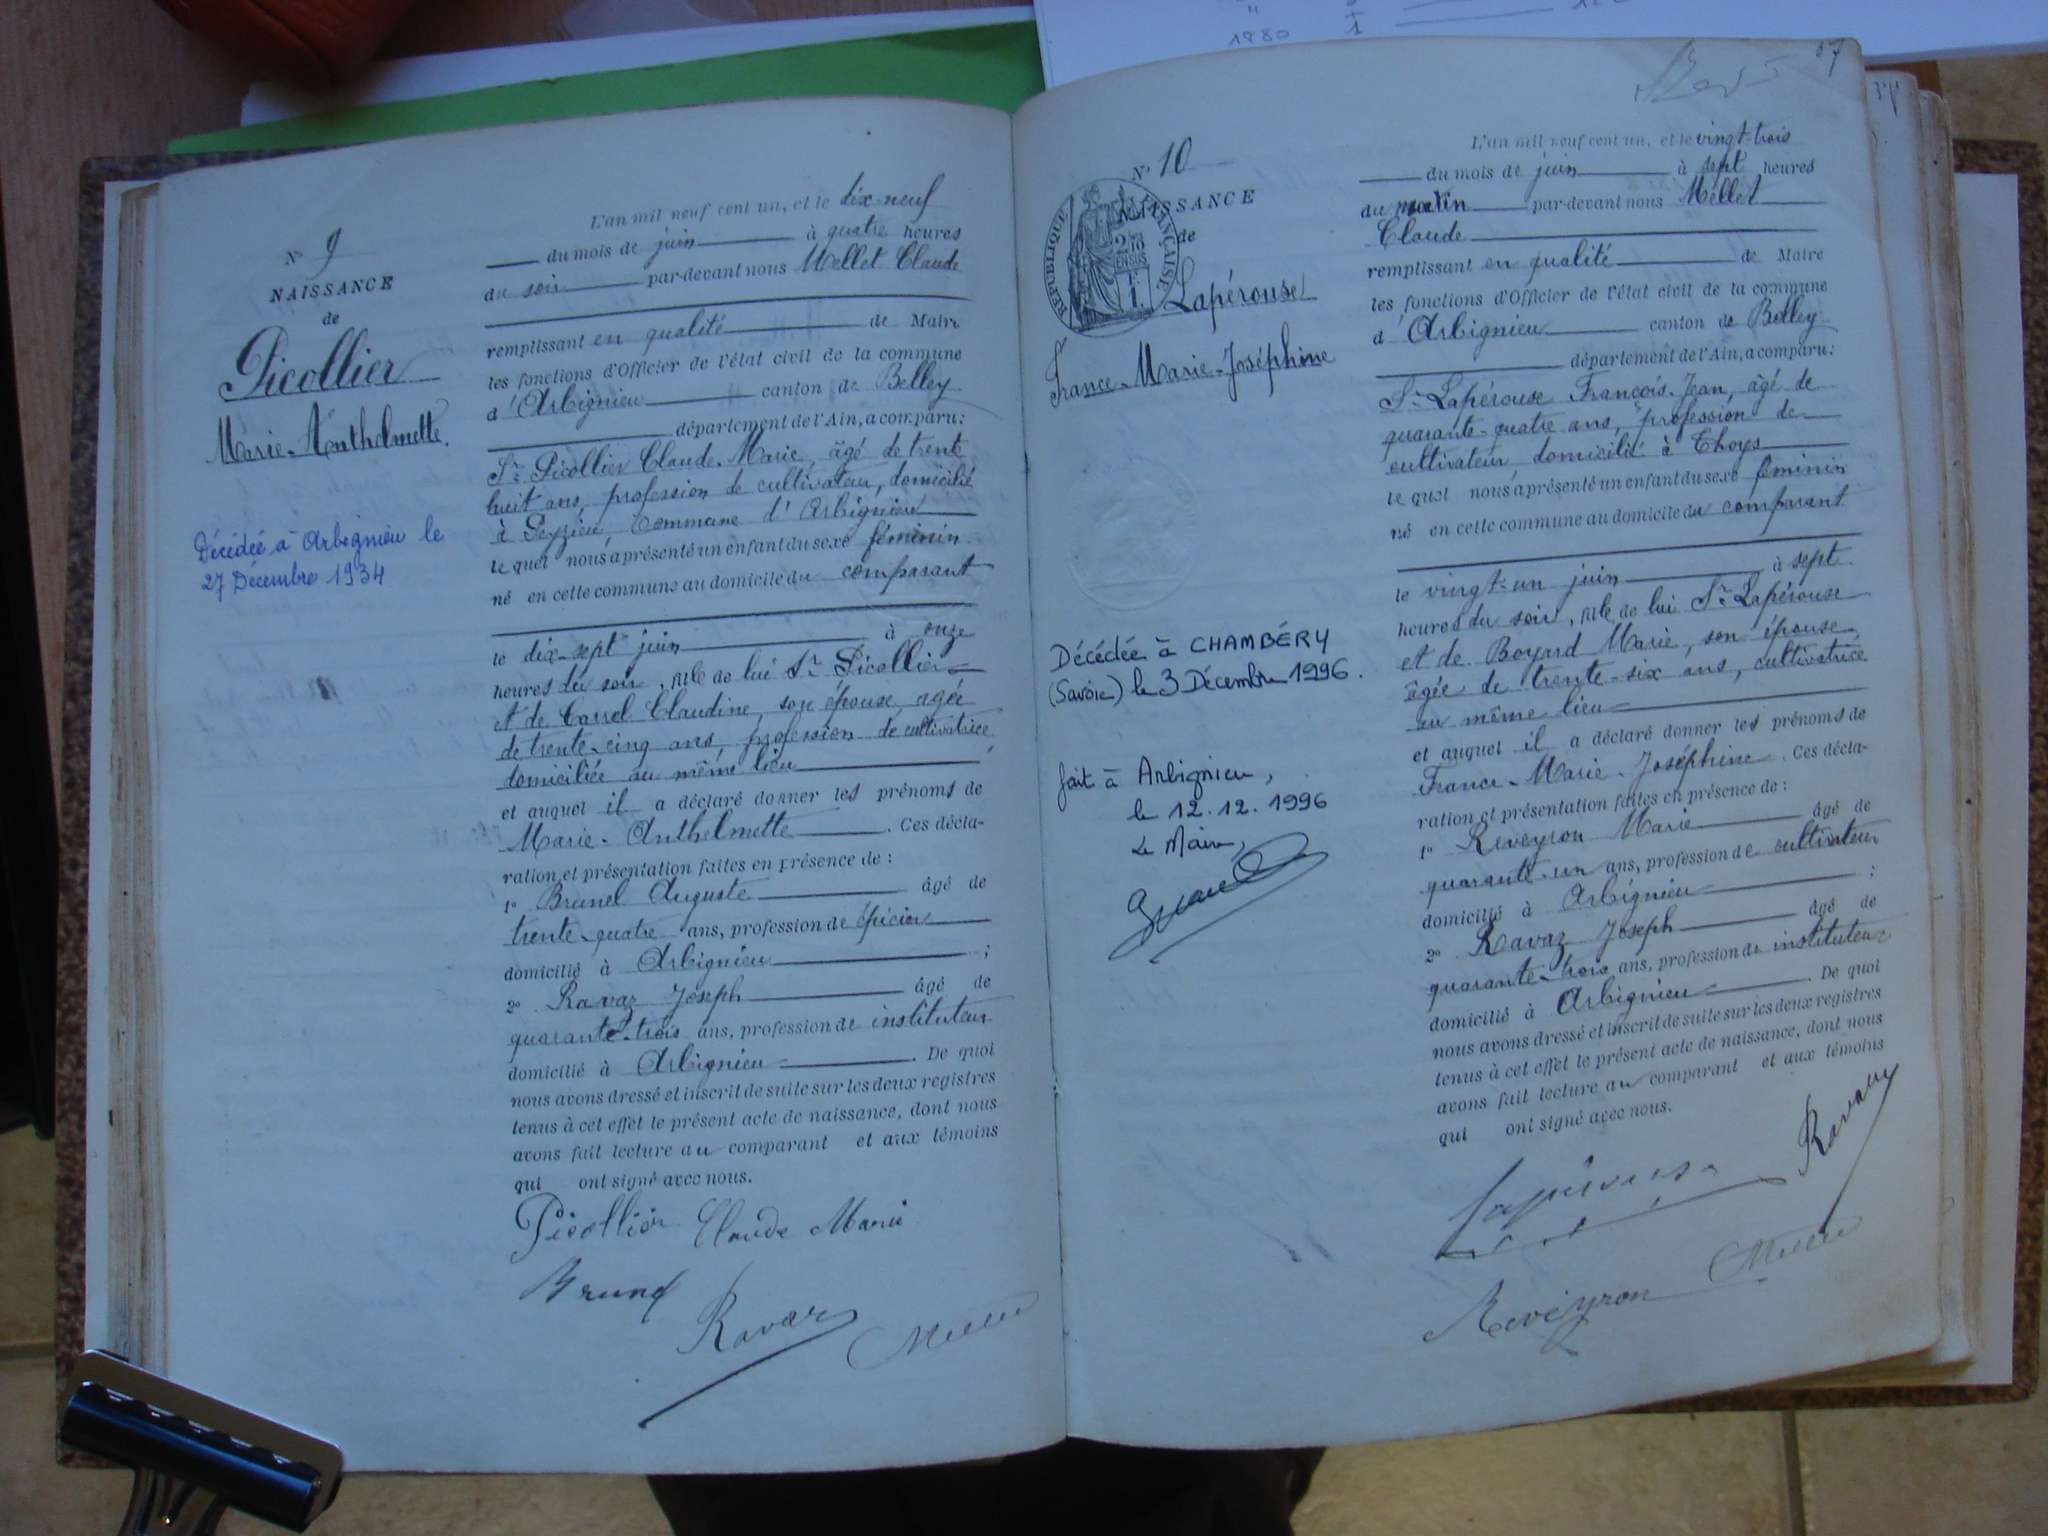 1980 1
N° 9
NAISSANCE
de
Picollier
Marie-Anthelmette.
Décédée à Arbignieu le
27 Décembre 1934
L'an mil neuf cent un, et le dix-neuf
du mois de juin à quatre heures
du soir par-devant nous Mellet Claude
remplissant en qualité de Maire
les fonctions d'Officier de l'état civil de la commune
d'Arbignieu canton de Belley
département de l'Ain, a comparu:
Sr Picollier Claude-Marie, âgé de trente
huit ans, profession de cultivateur, domicilié
à Peyzieu, commune d'Arbignieu
lequel nous a présenté un enfant du sexe féminin
né en cette commune au domicile du comparant
le dix-sept juin à onze
heures du soir, fille de lui Sr Picollier
et de Carrel Claudine, son épouse, agée
de trente-cinq ans, profession de cultivatrice,
domiciliée au même lieu
et auquel il a déclaré donner les prénoms de
Marie-Anthelmette. Ces décla-
ration et présentation faites en présence de :
1° Brunel Auguste âgé de
trente-quatre ans, profession de épicier
domicilié à Arbignieu ;
2° Ravaz Joseph âgé de
quarante-trois ans, profession de instituteur
domicilié à Arbignieu. De quoi
nous avons dressé et inscrit de suite sur les deux registres
tenus à cet effet le présent acte de naissance, dont nous
avons fait lecture au comparant et aux témoins
qui ont signé avec nous.
Picollier Claude Marie
Brunel
Ravaz Mellet
57
N° 10
NAISSANCE
de
RÉPUBLIQUE FRANÇAISE
2/10 EN SUS
1 F.
Lapérouse
France-Marie-Joséphine
Décédée à CHAMBÉRY
(Savoie) le 3 Décembre 1996.
fait à Arbignieu,
le 12.12.1996
Le Maire,
L'an mil neuf cent un, et le vingt-trois
du mois de juin à sept heures
du matin par-devant nous Mellet
Claude
remplissant en qualité de Maire
les fonctions d'Officier de l'état civil de la commune
d'Arbignieu canton de Belley
département de l'Ain, a comparu:
Sr Lapérouse François-Jean, âgé de
quarante-quatre ans, profession de
cultivateur, domicilié à Thoys
lequel nous a présenté un enfant du sexe féminin
né en cette commune au domicile du comparant
le vingt-un juin à sept
heures du soir, fille de lui Sr Lapérouse
et de Boyard Marie, son épouse
âgée de trente-six ans, cultivatrice
au même lieu
et auquel il a déclaré donner les prénoms de
France-Marie-Joséphine. Ces décla-
ration et présentation faites en présence de :
1° Reveyron Marie âgé de
quarante-un ans, profession de cultivateur
domicilié à Arbignieu ;
2° Ravaz Joseph âgé de
quarante-trois ans, profession de instituteur
domicilié à Arbignieu. De quoi
nous avons dressé et inscrit de suite sur les deux registres
tenus à cet effet le présent acte de naissance, dont nous
avons fait lecture au comparant et aux témoins
qui ont signé avec nous.
Lapérouse Ravaz
Reveyron Mellet